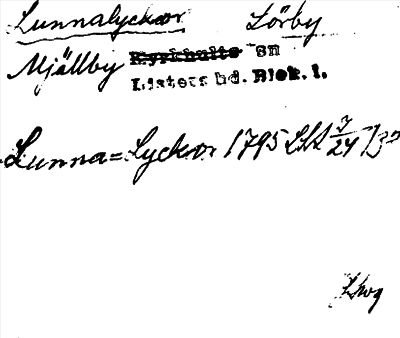 Lunnalyckor Lörby
Mjällby Kyrkhults sn
Listers hd. Blek. l.
Lunna=Lyckor 1795 LSA 7/24 1/30